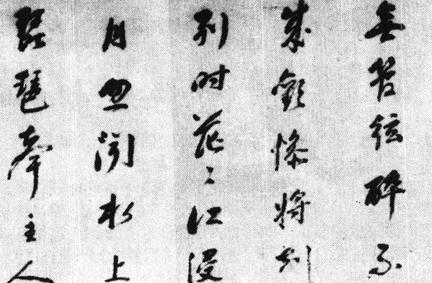 無管絃醉不
成歡慘將別
別時茫々江浸
月忽聞水上
琵琶聲主人